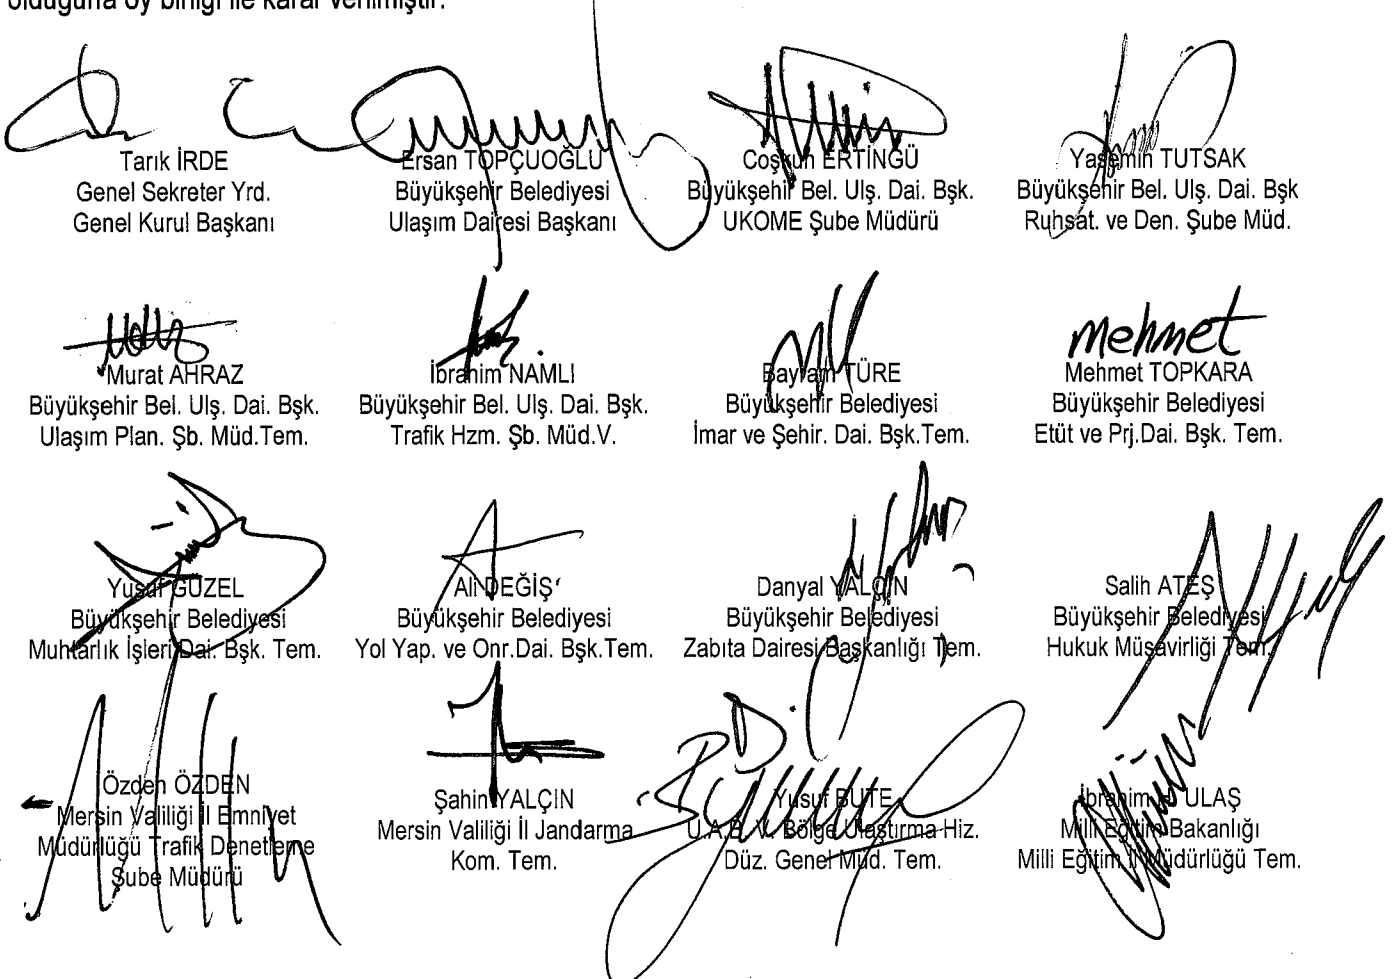 olduğuna oy birliği ile karar verilmiştir.
Tarık İRDE
Genel Sekreter Yrd.
Genel Kurul Başkanı
Ersan TOPÇUOĞLU
Büyükşehir Belediyesi
Ulaşım Dairesi Başkanı
Coşkun ERTİNGÜ
Büyükşehir Bel. Ulş. Dai. Bşk.
UKOME Şube Müdürü
Yasemin TUTSAK
Büyükşehir Bel. Ulş. Dai. Bşk
Ruhsat. ve Den. Şube Müd.
Murat AHRAZ
Büyükşehir Bel. Ulş. Dai. Bşk.
Ulaşım Plan. Şb. Müd.Tem.
İbrahim NAMLI
Büyükşehir Bel. Ulş. Dai. Bşk.
Trafik Hzm. Şb. Müd.V.
Bayram TÜRE
Büyükşehir Belediyesi
İmar ve Şehir. Dai. Bşk.Tem.
mehmet
Mehmet TOPKARA
Büyükşehir Belediyesi
Etüt ve Prj.Dai. Bşk. Tem.
Yusuf GÜZEL
Büyükşehir Belediyesi
Muhtarlık İşleri Dai. Bşk. Tem.
Ali DEĞİŞ
Büyükşehir Belediyesi
Yol Yap. ve Onr.Dai. Bşk.Tem.
Danyal YALÇIN
Büyükşehir Belediyesi
Zabıta Dairesi Başkanlığı Tem.
Salih ATEŞ
Büyükşehir Belediyesi
Hukuk Müşavirliği Tem.
Özden ÖZDEN
Mersin Valiliği İl Emniyet
Müdürlüğü Trafik Denetleme
Şube Müdürü
Şahin YALÇIN
Mersin Valiliği İl Jandarma
Kom. Tem.
Yusuf BUTE
U.A.B. V. Bölge Ulaştırma Hiz.
Düz. Genel Müd. Tem.
İbrahim H. ULAŞ
Milli Eğitim Bakanlığı
Milli Eğitim İl Müdürlüğü Tem.